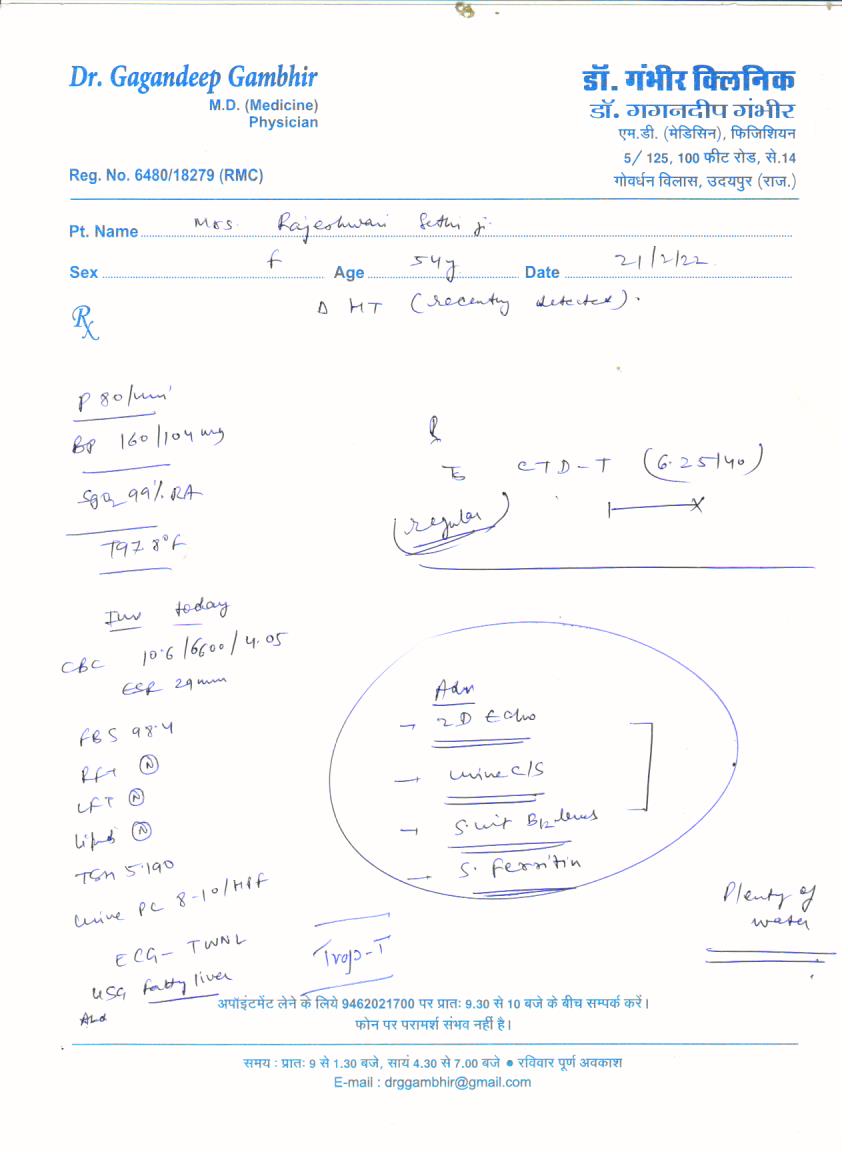 Dr. Gagandeep Gambhir
M.D. (Medicine)
Physician
Reg. No. 6480/18279 (RMC)
डॉ. गंभीर क्लिनिक
डॉ. गगनदीप गंभीर
एम.डी. (मेडिसिन), फिजिशियन
5/ 125, 100 फीट रोड, से.14
गोवर्धन विलास, उदयपुर (राज.)
Pt. Name Mrs. Rajeshwari Sethi ji
Sex f Age 54y Date 21/2/22
Rx
Δ HT (recently detected).
P 80/min
BP 160/104 mg
SpO2 99% RA
T97.8°F
R
CTD-T (6.25/40)
(regular)
Inv today
CBC 10.6/6600/4.05
ESR 29mm
FBS 98.4
RFT (N)
LFT (N)
Lipid (N)
TSH 5.190
Urine PC 8-10/HPF
ECG - TWNL
USG fatty liver
Abd
Trop-T
Adv
- 2D Echo
- Urine C/S
- S. vit B12 levels
- S. ferritin
Plenty of
water
अपॉइंटमेंट लेने के लिये 9462021700 पर प्रातः 9.30 से 10 बजे के बीच सम्पर्क करें।
फोन पर परामर्श संभव नहीं है।
समय : प्रातः 9 से 1.30 बजे, सायं 4.30 से 7.00 बजे ● रविवार पूर्ण अवकाश
E-mail : drggambhir@gmail.com